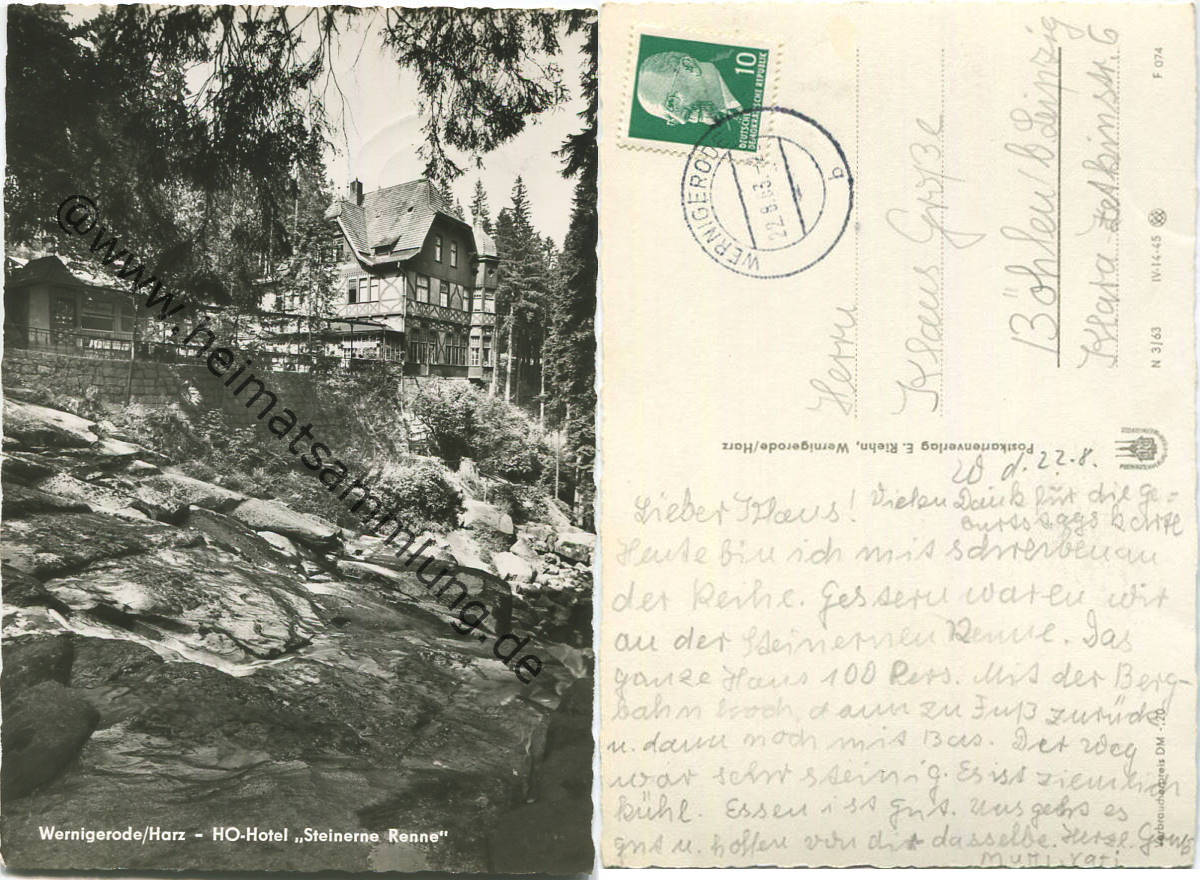 @www.heimatsammlung.de
Wernigerode/Harz - HO-Hotel „Steinerne Renne"
10
DEUTSCHE
DEMOKRATISCHE REPUBLIK
WERNIGERODE
22.8.63
b
Herrn
Klaus Große
Böhlen b Leipzig
Klara-Zetkinstr. 6
N 3/63 IV-14-45 F 074
Postkartenverlag E. Riehn, Wernigerode/Harz
Verbraucherpreis DM -,20
W d. 22.8.
Lieber Klaus! Vielen Dank für die Ge-
burtstagskarte
Heute bin ich mit schreiben an
der Reihe. Gestern waren wir
an der Steinernen Renne. Das
ganze Haus 100 Pers. Mit der Berg-
bahn hoch, dann zu Fuß zurück
u. dann noch mit Bus. Der Weg
war sehr steinig. Es ist ziemlich
kühl. Essen ist gut. Uns gehts es
gut u. hoffen von dir dasselbe. Herzl. Gruß
Mutti Vati